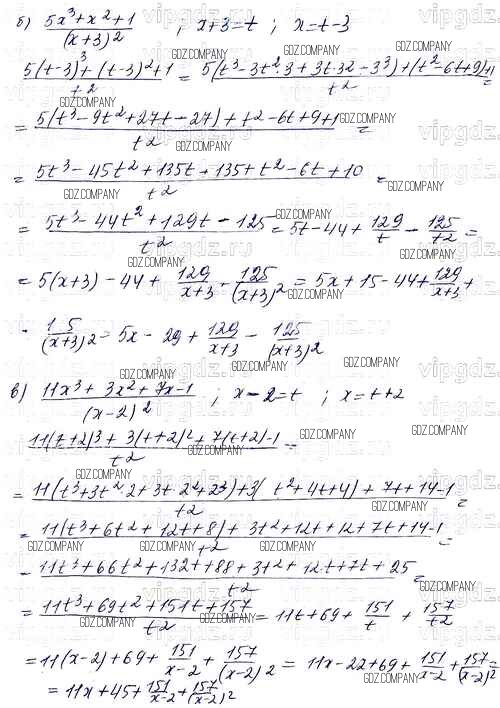 б) (5x³+x²+1)/(x+3)² ; x+3=t ; x=t-3
(5(t-3)³+(t-3)²+1)/t² = (5(t³-3t²·3+3t·3²-3³)+(t²-6t+9)+1)/t² =
= (5(t³-9t²+27t-27)+t²-6t+9+1)/t² =
= (5t³-45t²+135t+135+t²-6t+10)/t² =
= (5t³-44t²+129t-125)/t² = 5t-44+129/t-125/t² =
= 5(x+3)-44+129/(x+3)-125/(x+3)² = 5x+15-44+129/(x+3)+
·15/(x+3)² = 5x-29+129/(x+3)-125/(x+3)²
в) (11x³+3x²+7x-1)/(x-2)² ; x-2=t ; x=t+2
(11(t+2)³+3(t+2)²+7(t+2)-1)/t² =
= (11(t³+3t²·2+3t·2²+2³)+3(t²+4t+4)+7t+14-1)/t² =
= (11(t³+6t²+12t+8)+3t²+12t+12+7t+14-1)/t² =
= (11t³+66t²+132t+88+3t²+12t+7t+25)/t² =
= (11t³+69t²+151t+157)/t² = 11t+69+151/t+157/t²
= 11(x-2)+69+151/(x-2)+157/(x-2)² = 11x-22+69+151/(x-2)+157/(x-2)² =
= 11x+45+151/(x-2)+157/(x-2)²
vipgdz.ru
GDZ.COMPANY